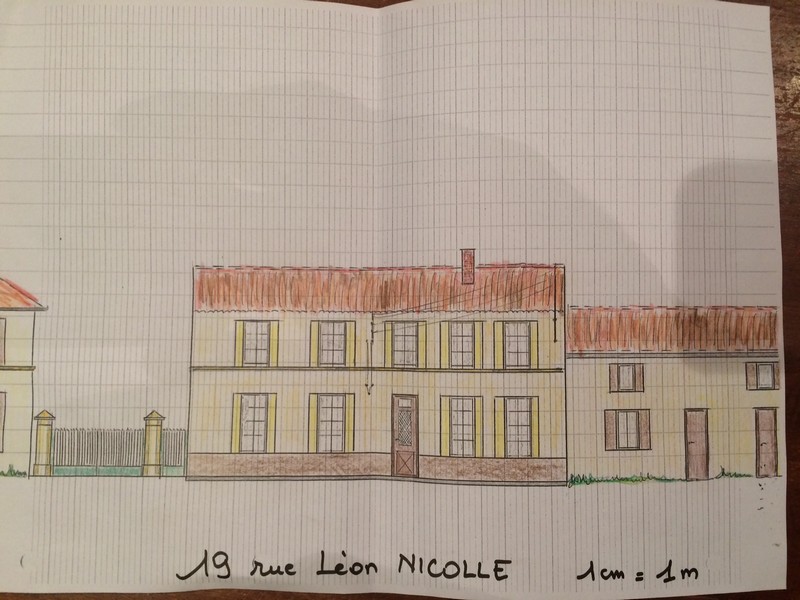 19 rue Léon NICOLLE 1cm = 1m